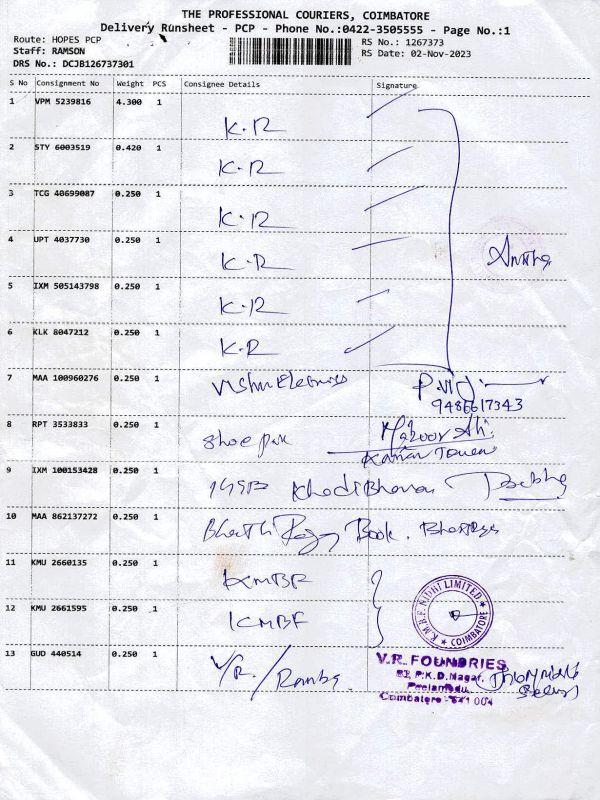 THE PROFESSIONAL COURIERS, COIMBATORE
Delivery Runsheet - PCP - Phone No.:0422-3505555 - Page No.:1
Route: HOPES PCP RS No.: 1267373
Staff: RAMSON RS Date: 02-Nov-2023
DRS No.: DCJB126737301
S No Consignment No Weight PCS Consignee Details Signature
1 VPM 5239816 4.300 1 K.R
2 STY 6003519 0.420 1 K.R
3 TCG 40699087 0.250 1 K.R
4 UPT 4037730 0.250 1 K.R
5 IXM 505143798 0.250 1 K.R
6 KLK 8047212 0.250 1 K.R
7 MAA 100960276 0.250 1
9486617343
8 RPT 3533833 0.250 1 Shoe
9 IXM 100153428 0.250 1 Khadi Bhavan
10 MAA 862137272 0.250 1 Book.
11 KMU 2660135 0.250 1 KMBF
12 KMU 2661595 0.250 1 KMBF
K.M.B.F. NIDHI LIMITED
COIMBATORE
13 GUD 440514 0.250 1 V.R.
V.R. FOUNDRIES
P.K.D.Nagar,
Peelamedu,
Coimbatore - 641 004